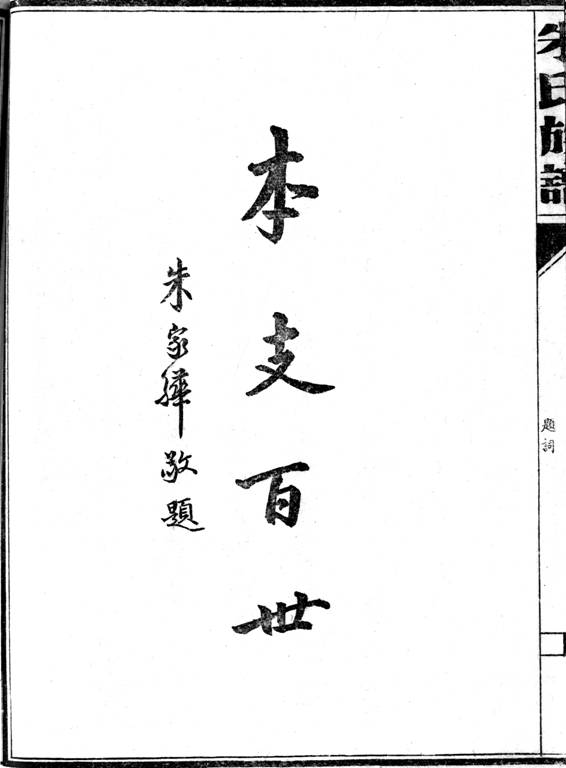 朱氏族譜
題詞
本支百世
朱家驊敬題